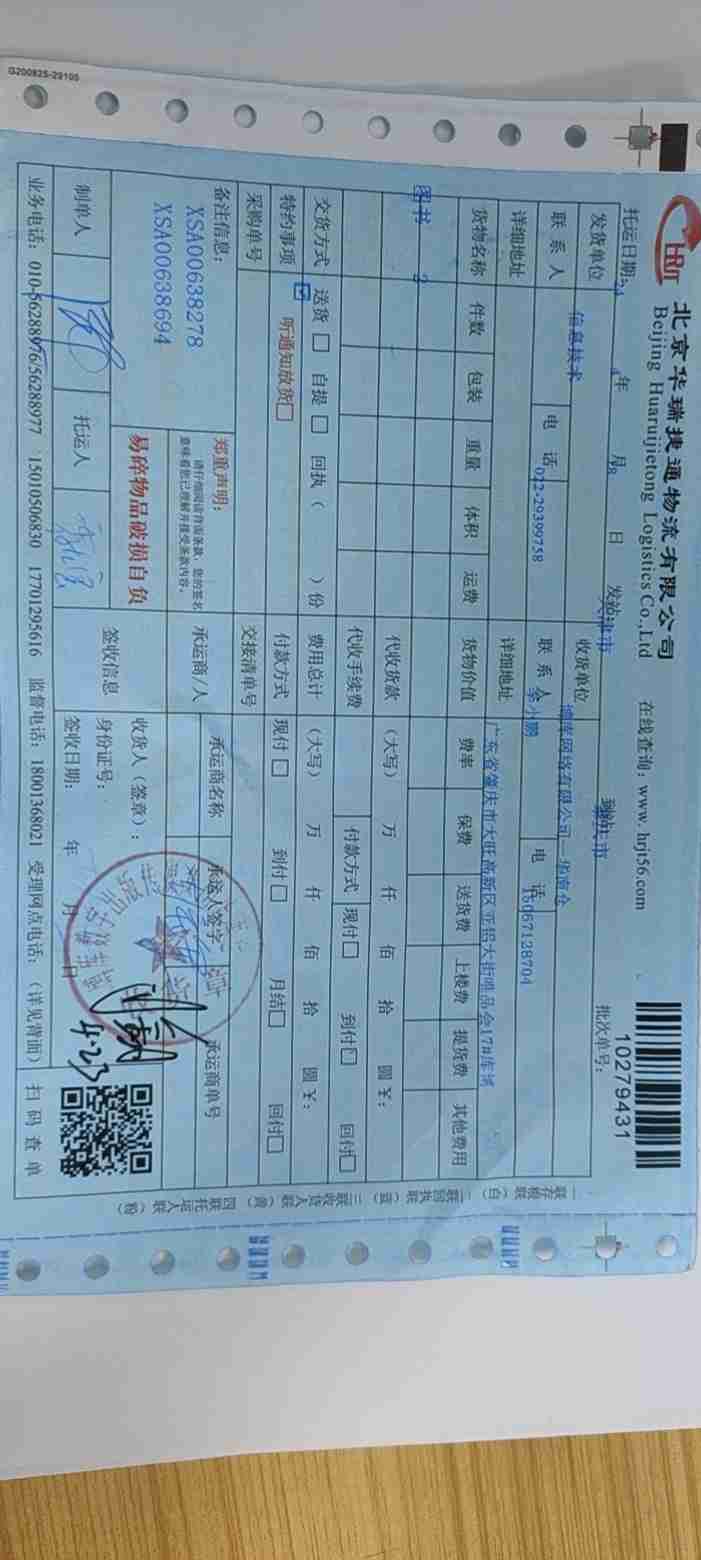 G200825-29105
北京华瑞捷通物流有限公司
Beijing Huaruijietong Logistics Co.,Ltd
在线查询: www.hrjt56.com
10279431
托运日期: 24 年 4 月 8 日 发站: 天津市 到站: 批次单号:
发货单位 信息技术 收货单位 网络有限公司—华南仓
联系人 电话 022-29399758 联系人 李小鹏 电话 15067128704
详细地址 详细地址 广东省肇庆市大旺高新区亚铝大街唯品会17#库
货物名称 件数 包装 重量 体积 运费 货物价值 费率 保费 送货费 上楼费 提货费 其他费用
图书 2
代收货款 (大写) 万 仟 佰 拾 圆 ¥:
代收手续费 付款方式 现付□ 到付□ 回付□
交货方式 送货 □ 自提 □ 回执 ( ) 份 费用总计 (大写) 万 仟 佰 拾 圆 ¥:
特约事项 ☑ 听通知放货□ 付款方式 现付 □ 到付 □ 月结□ 回付□
采购单号 交接清单号
备注信息:
XSA00638278
XSA00638694
郑重声明:
请仔细阅读背面条款, 您的签名
意味着您已理解并接受条款内容。
易碎物品破损自负
承运商/人 承运商名称 承运人签字 承运商单号
制单人 托运人 签收信息
收货人 (签章):
身份证号:
签收日期: 年 月 日
4.23
扫码查单
业务电话: 010-56288976/56288977 15010506830 17701295616 监督电话: 18001368021 受理网点电话: (详见背面)
一联存根联 (白) 二联回执联 (蓝) 三联收货人联 (黄) 四联托运人联 (粉)